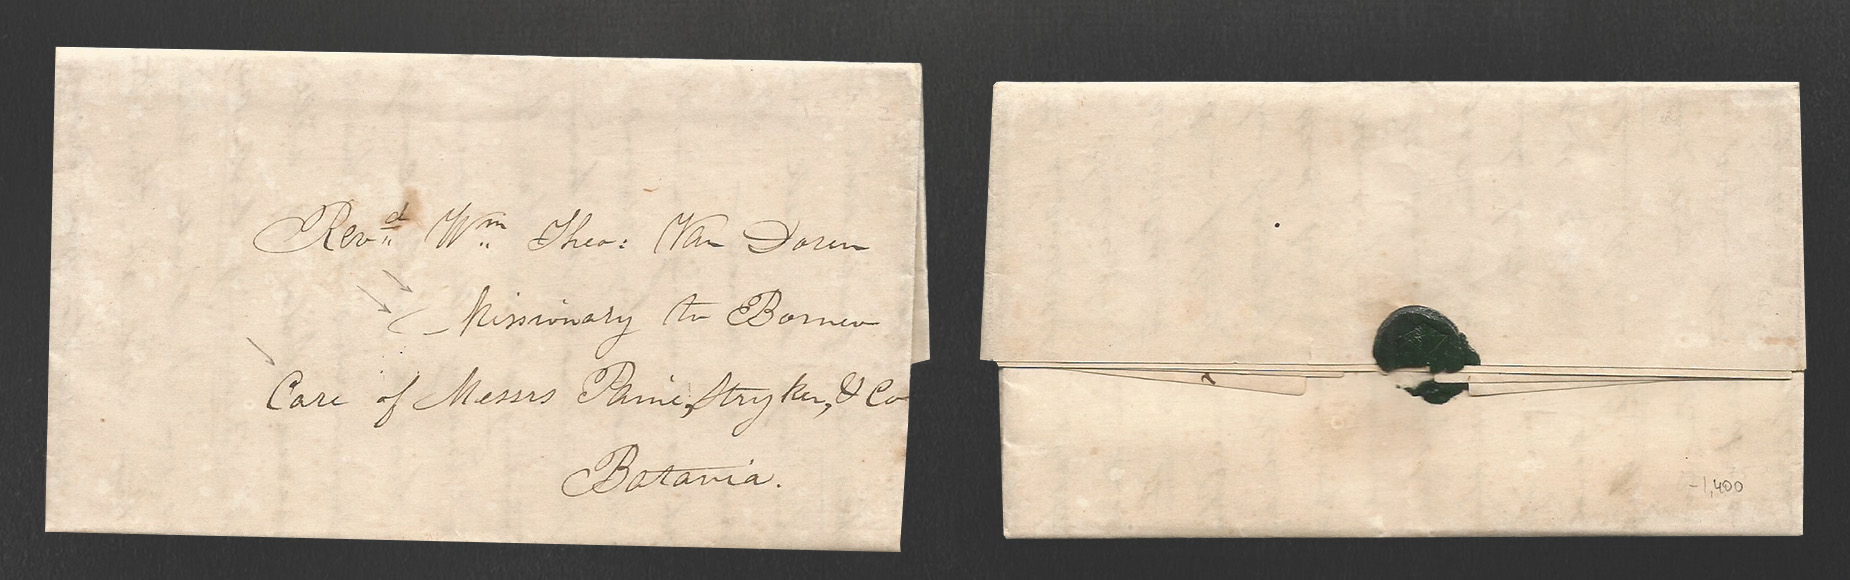 Revd Wm Theo: Van Doren
Missionary to Borneo
Care of Messrs Paine, Stryker, & Co
Batavia.
-1,400